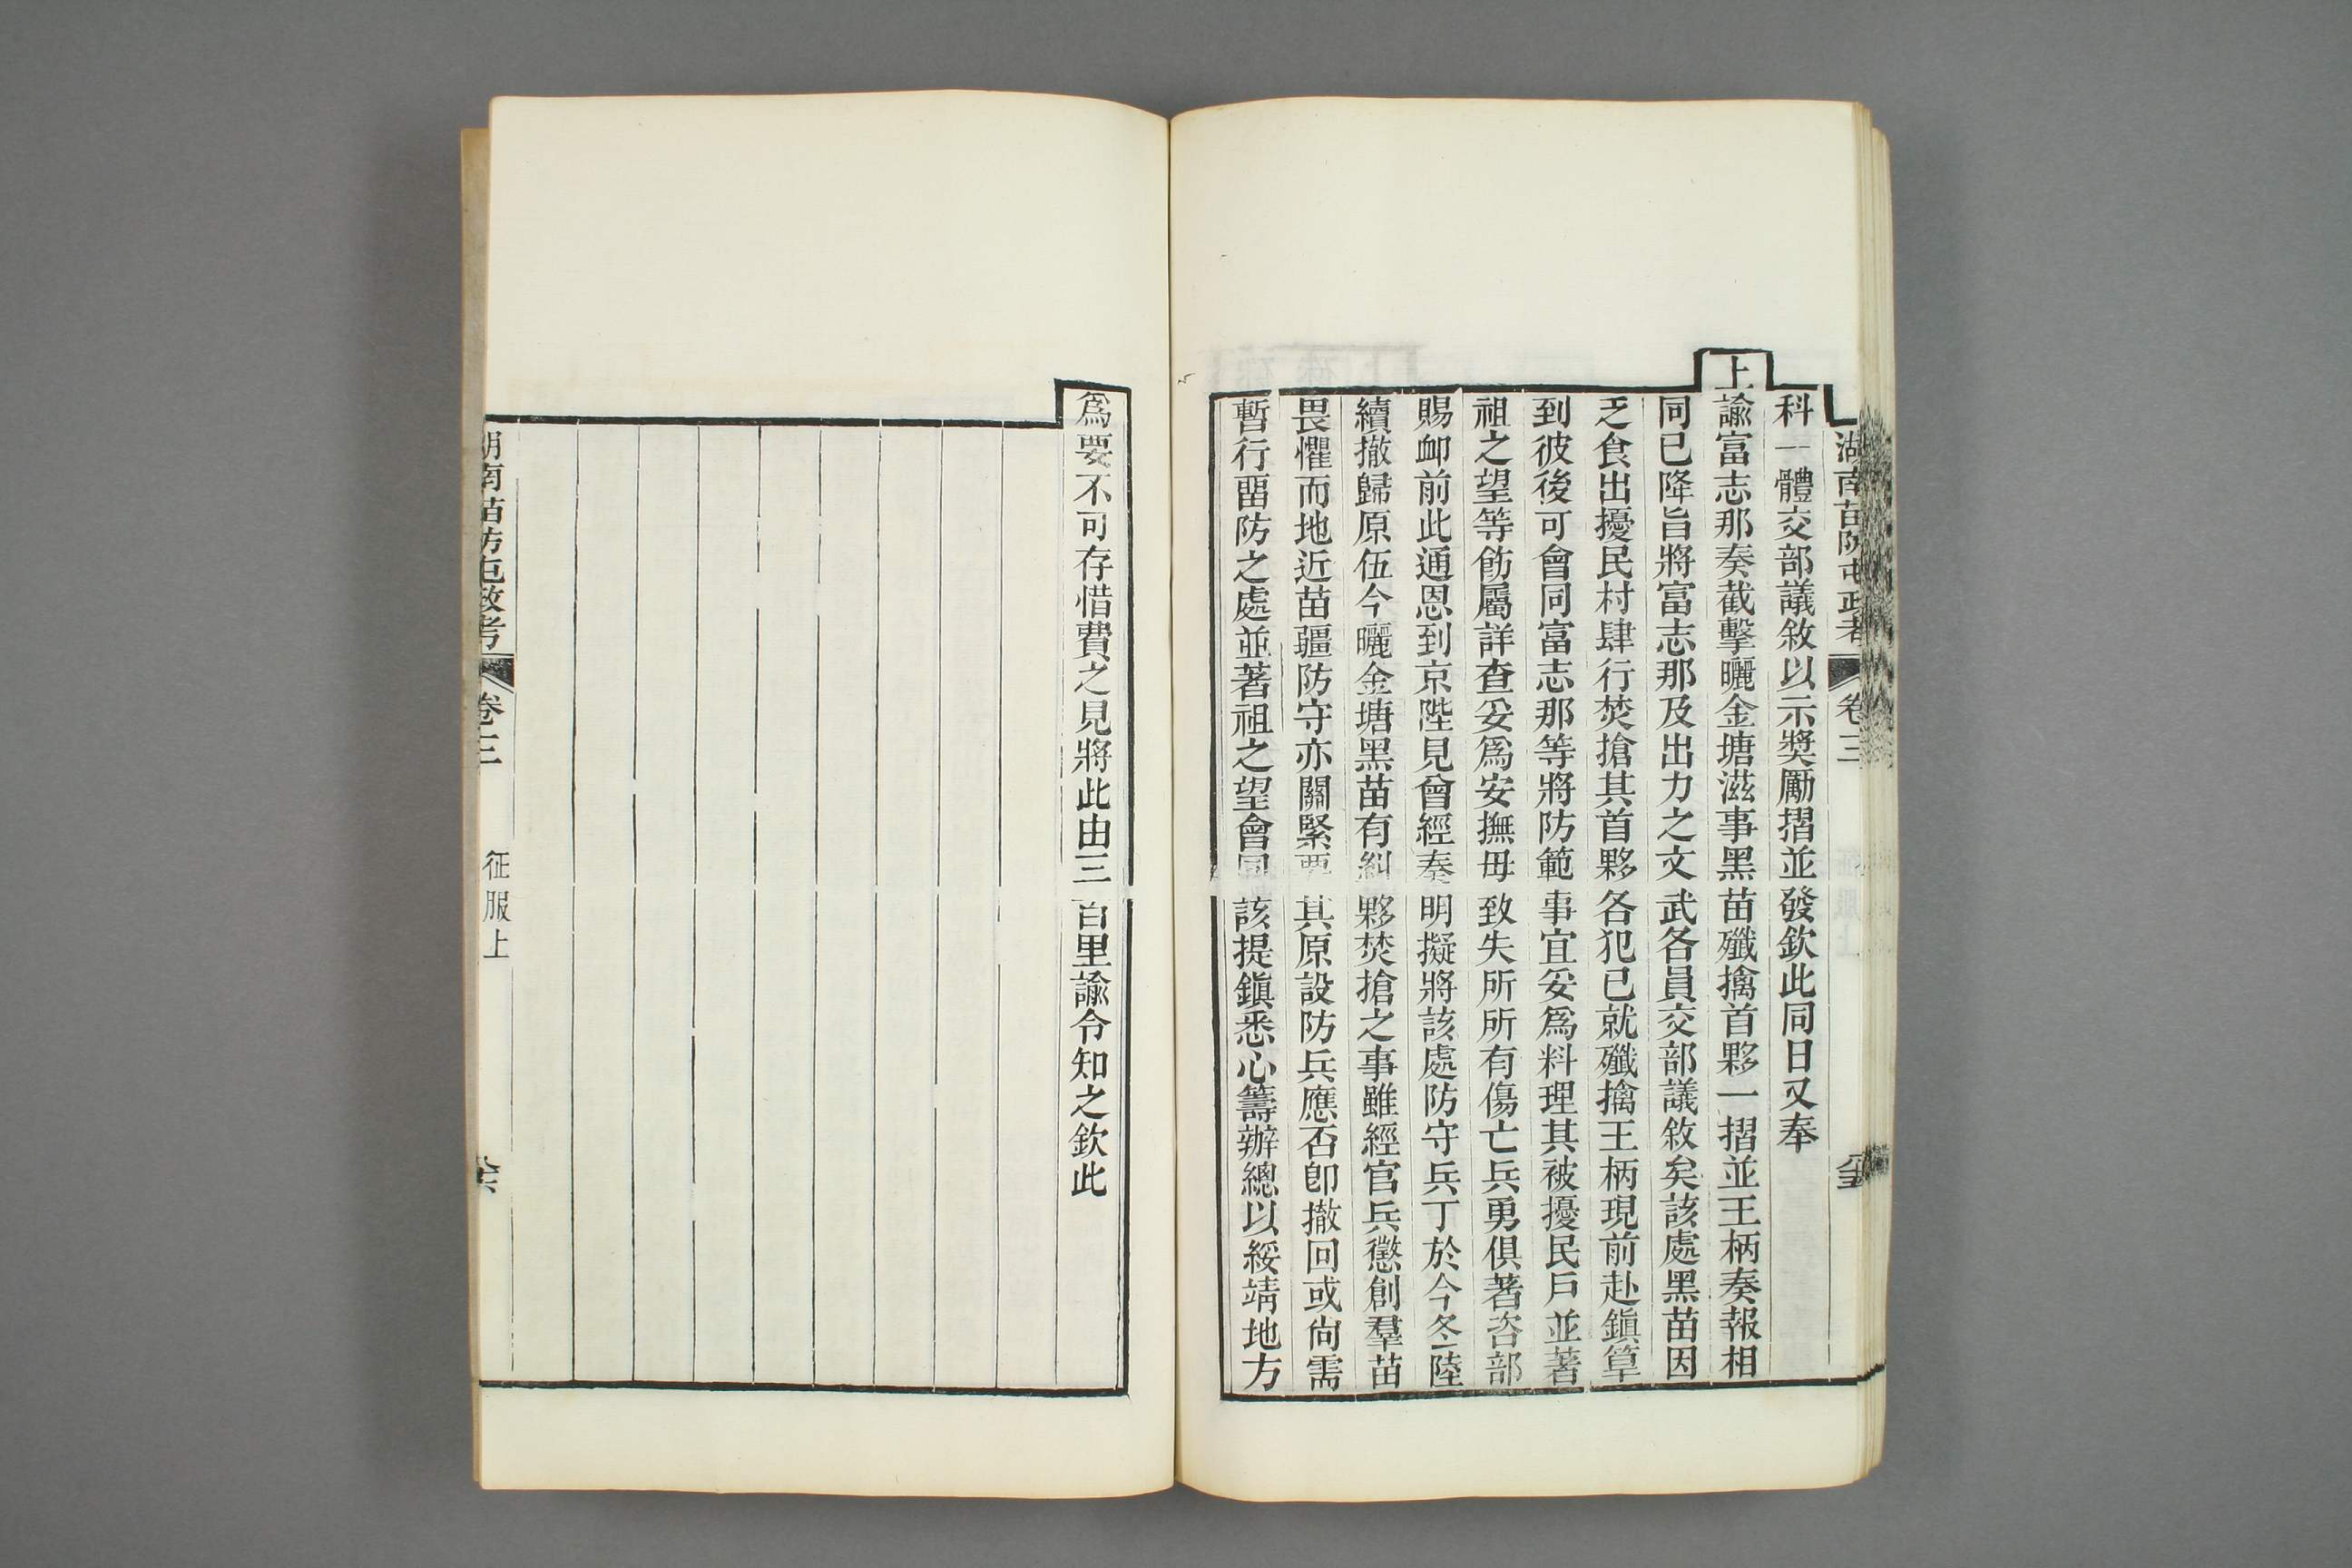 湖南苗防屯政考 卷三
科一體交部議敘以示奬勵摺並發欽此同日又奉
上諭富志那奏截擊曬金塘滋事黑苗殲擒首夥一摺並王柄奏報相
同已降旨將富志那及出力之文武各員交部議敘矣該處黑苗因
乏食出擾民村肆行焚搶其首夥各犯已就殲擒王柄現前赴鎭筸
到彼後可會同富志那等將防範事宜妥爲料理其被擾民戶並著
祖之望等飭屬詳查妥爲安撫毋致失所所有傷亡兵勇俱著咨部
賜卹前此通恩到京陛見曾經奏明擬將該處防守兵丁於今冬陸
續撤歸原伍今曬金塘黑苗有糾夥焚搶之事雖經官兵懲創羣苗
畏懼而地近苗疆防守亦關緊要其原設防兵應否卽撤回或尙需
暫行畱防之處並著祖之望會同該提鎭悉心籌辦總以綏靖地方
爲要不可存惜費之見將此由三百里諭令知之欽此
湖南苗防屯政考 卷三 征服上